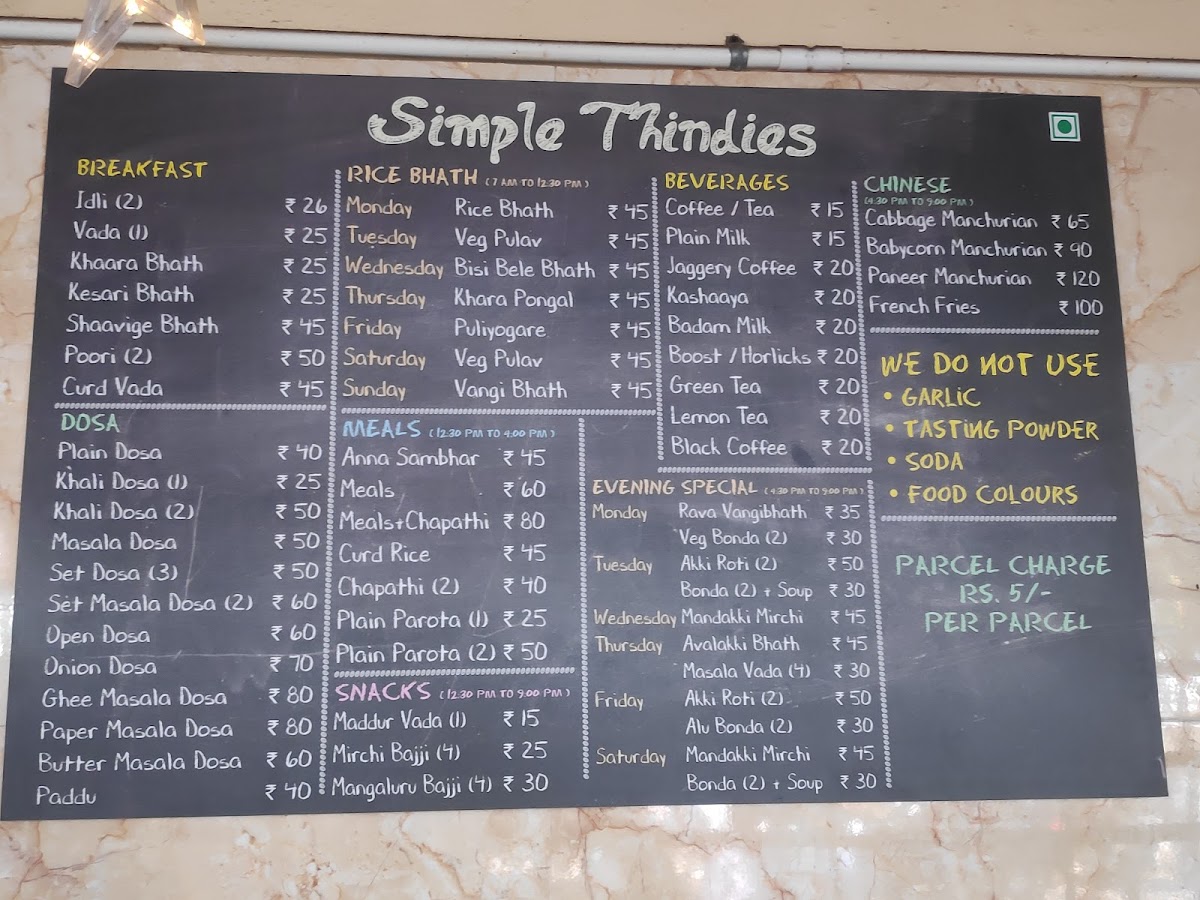 Simple Thindies
BREAKFAST
Idli (2) ₹ 26
Vada (1) ₹ 25
Khaara Bhath ₹ 25
Kesari Bhath ₹ 25
Shaavige Bhath ₹ 45
Poori (2) ₹ 50
Curd Vada ₹ 45
DOSA
Plain Dosa ₹ 40
Khali Dosa (1) ₹ 25
Khali Dosa (2) ₹ 50
Masala Dosa ₹ 50
Set Dosa (3) ₹ 50
Set Masala Dosa (2) ₹ 60
Open Dosa ₹ 60
Onion Dosa ₹ 70
Ghee Masala Dosa ₹ 80
Paper Masala Dosa ₹ 80
Butter Masala Dosa ₹ 60
Paddu ₹ 40
RICE BHATH (7 AM TO 12:30 PM)
Monday Rice Bhath ₹ 45
Tuesday Veg Pulav ₹ 45
Wednesday Bisi Bele Bhath ₹ 45
Thursday Khara Pongal ₹ 45
Friday Puliyogare ₹ 45
Saturday Veg Pulav ₹ 45
Sunday Vangi Bhath ₹ 45
MEALS (12:30 PM TO 4:00 PM)
Anna Sambhar ₹ 45
Meals ₹ 60
Meals+Chapathi ₹ 80
Curd Rice ₹ 45
Chapathi (2) ₹ 40
Plain Parota (1) ₹ 25
Plain Parota (2) ₹ 50
SNACKS (12:30 PM TO 9:00 PM)
Maddur Vada (1) ₹ 15
Mirchi Bajji (4) ₹ 25
Mangaluru Bajji (4) ₹ 30
BEVERAGES
Coffee / Tea ₹ 15
Plain Milk ₹ 15
Jaggery Coffee ₹ 20
Kashaaya ₹ 20
Badam Milk ₹ 20
Boost / Horlicks ₹ 20
Green Tea ₹ 20
Lemon Tea ₹ 20
Black Coffee ₹ 20
EVENING SPECIAL (4:30 PM TO 9:00 PM)
Monday Rava Vangibhath ₹ 35
Veg Bonda (2) ₹ 30
Tuesday Akki Roti (2) ₹ 50
Bonda (2) + Soup ₹ 30
Wednesday Mandakki Mirchi ₹ 45
Thursday Avalakki Bhath ₹ 45
Masala Vada (4) ₹ 30
Friday Akki Roti (2) ₹ 50
Alu Bonda (2) ₹ 30
Saturday Mandakki Mirchi ₹ 45
Bonda (2) + Soup ₹ 30
CHINESE
(4:30 PM TO 9:00 PM)
Cabbage Manchurian ₹ 65
Babycorn Manchurian ₹ 90
Paneer Manchurian ₹ 120
French Fries ₹ 100
WE DO NOT USE
• GARLIC
• TASTING POWDER
• SODA
• FOOD COLOURS
PARCEL CHARGE
RS. 5/-
PER PARCEL